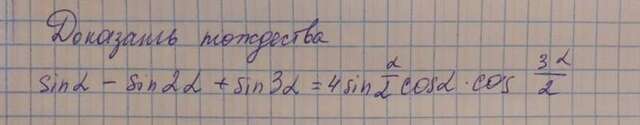 Доказать тождества
sinα - sin2α + sin3α = 4 sin α/2 cosα · cos 3α/2